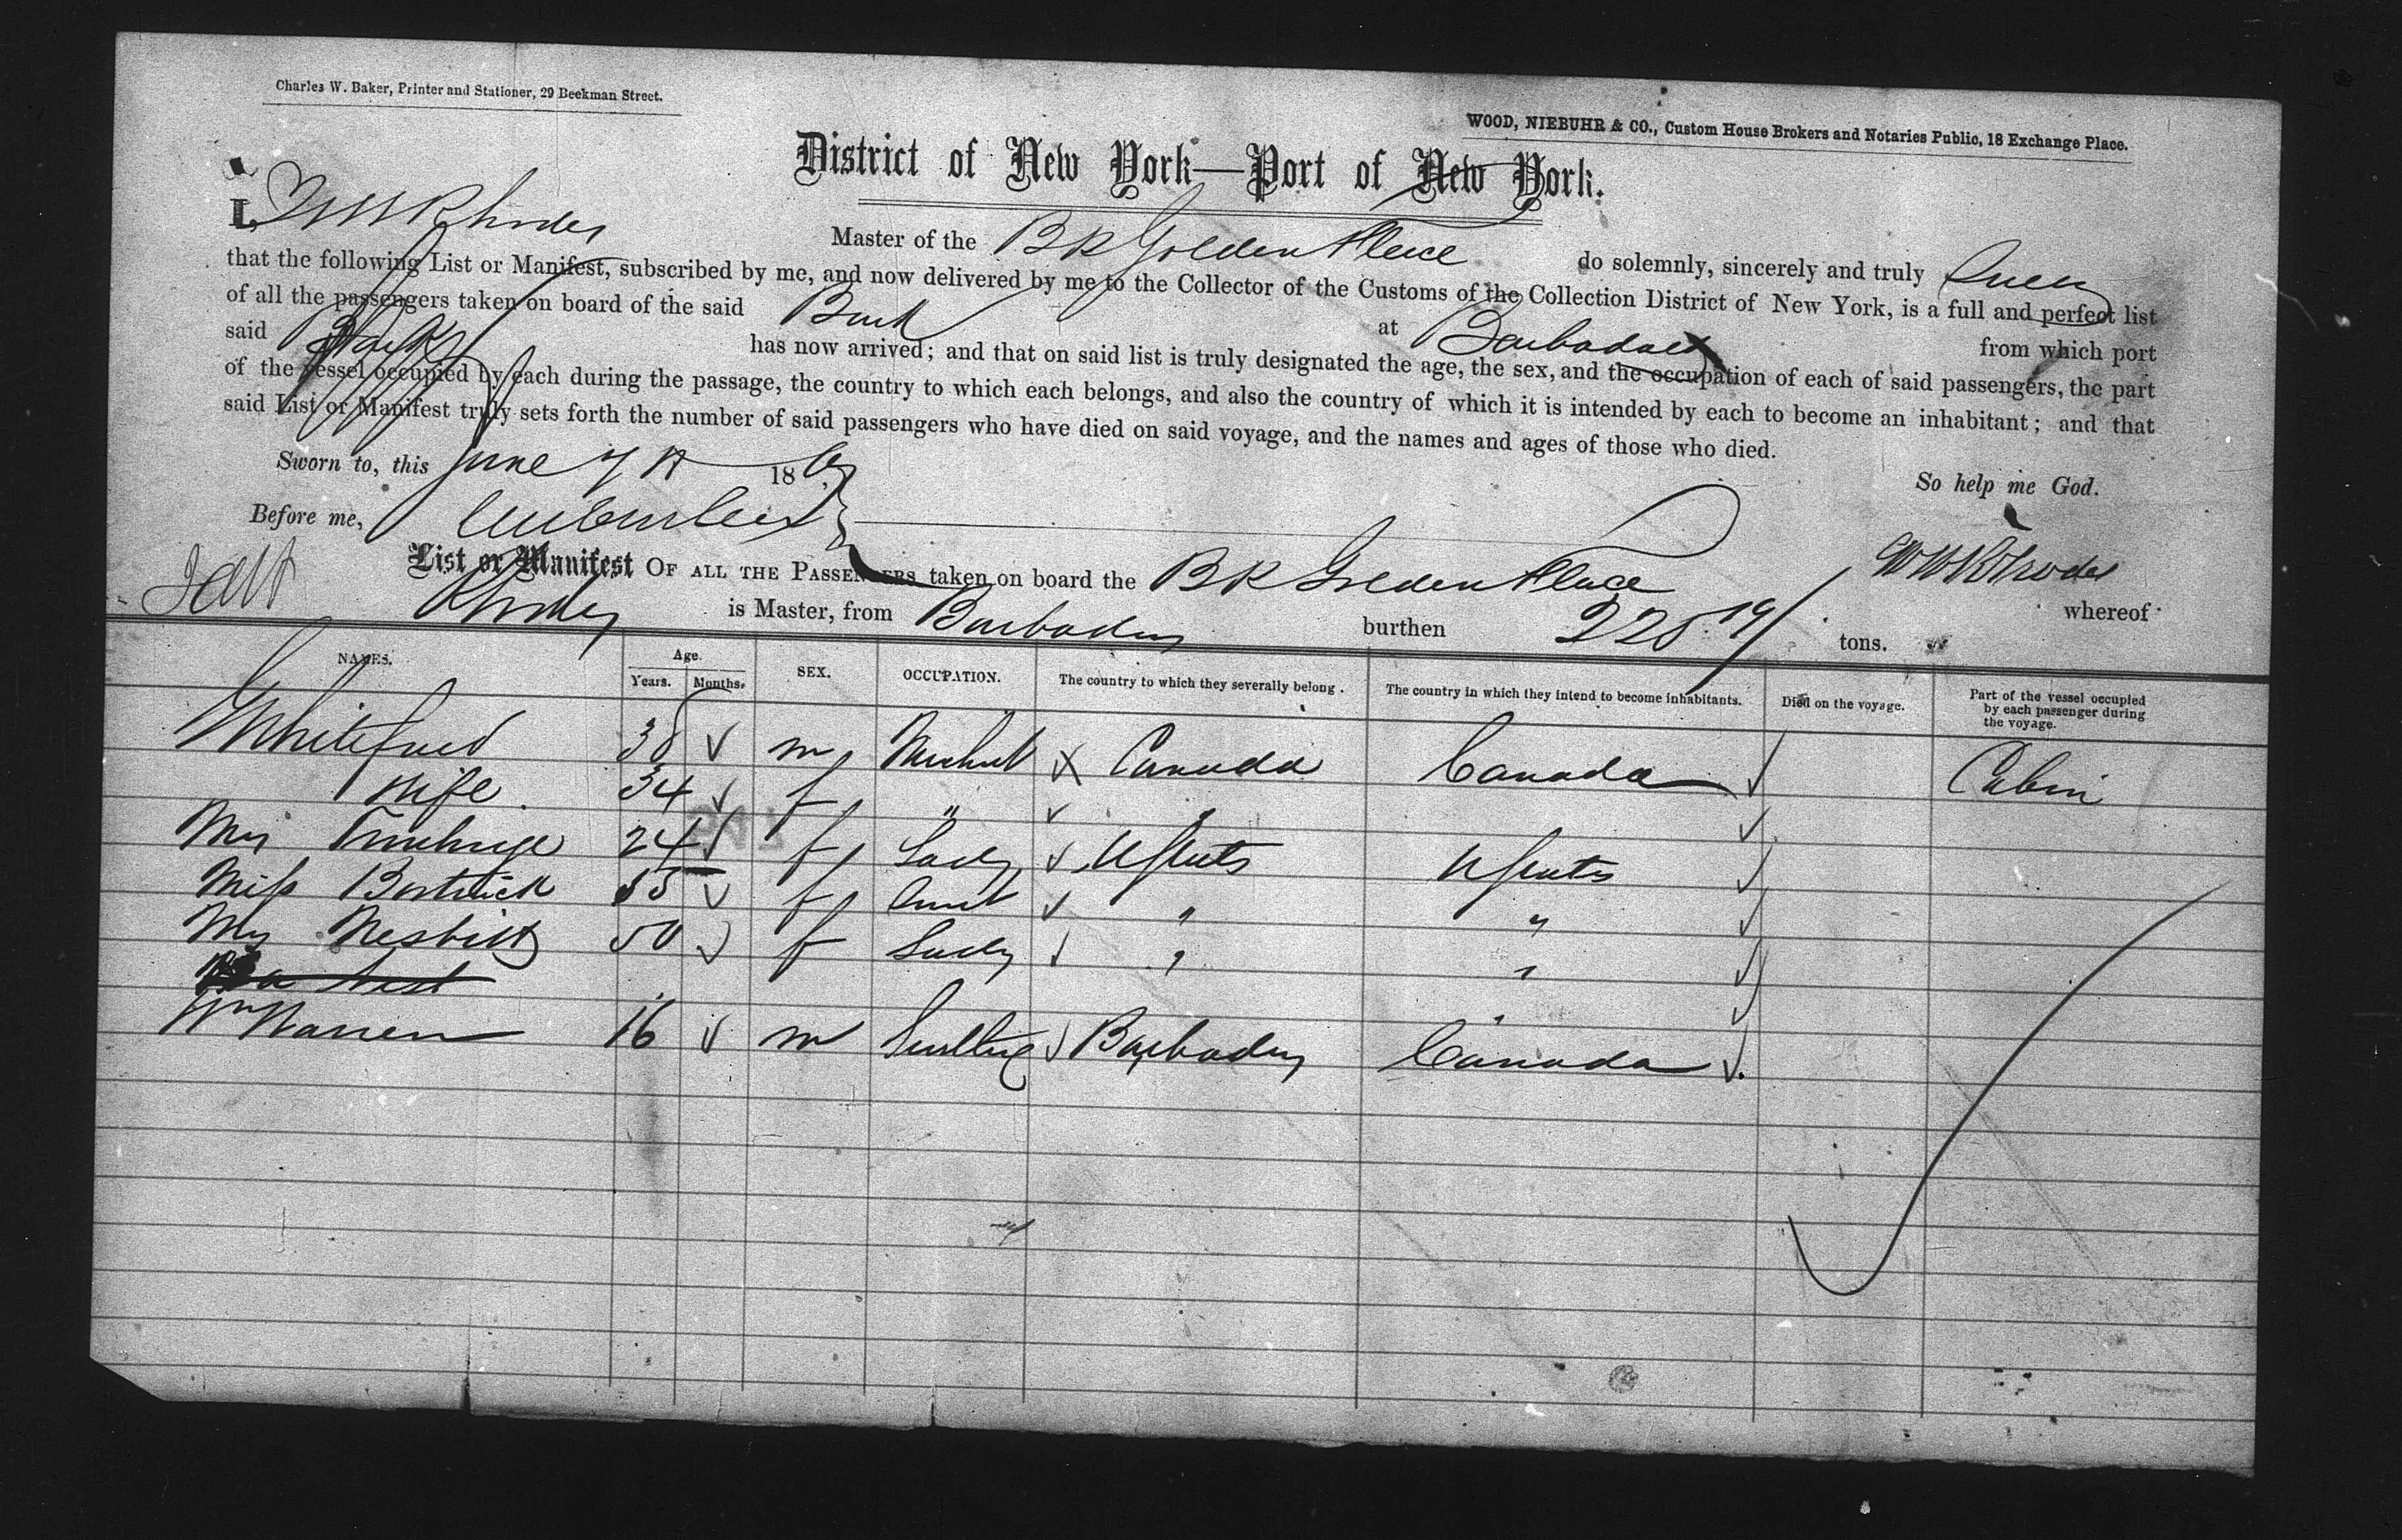 Charles W. Baker, Printer and Stationer, 29 Beekman Street.
WOOD, NIEBUHR & CO., Custom House Brokers and Notaries Public, 18 Exchange Place.
District of New York—Port of New York.
I, Rhodes Master of the Bk Golden Fleece do solemnly, sincerely and truly
that the following List or Manifest, subscribed by me, and now delivered by me to the Collector of the Customs of the Collection District of New York, is a full and perfect list
of all the passengers taken on board of the said Bark at Barbadoes from which port
said Bark has now arrived; and that on said list is truly designated the age, the sex, and the occupation of each of said passengers, the part
of the vessel occupied by each during the passage, the country to which each belongs, and also the country of which it is intended by each to become an inhabitant; and that
said List or Manifest truly sets forth the number of said passengers who have died on said voyage, and the names and ages of those who died.
So help me God.
Sworn to, this June 7 18
Before me,
W W Rhodes
List or Manifest OF ALL THE PASSENGERS taken on board the Bk Golden Fleece whereof
Rhodes is Master, from Barbados burthen 225 19/ tons.
NAMES. Age. Years. Months. SEX. OCCUPATION. The country to which they severally belong. The country in which they intend to become inhabitants. Died on the voyage. Part of the vessel occupied by each passenger during the voyage.
Whiteford 38 m Canada Canada Cabin
Wife 34 f " "
24 f Lady U States U States
Miss Bostwick f " "
Nesbitt 50 f Lady " "
Wm Warren 16 m Barbados Canada